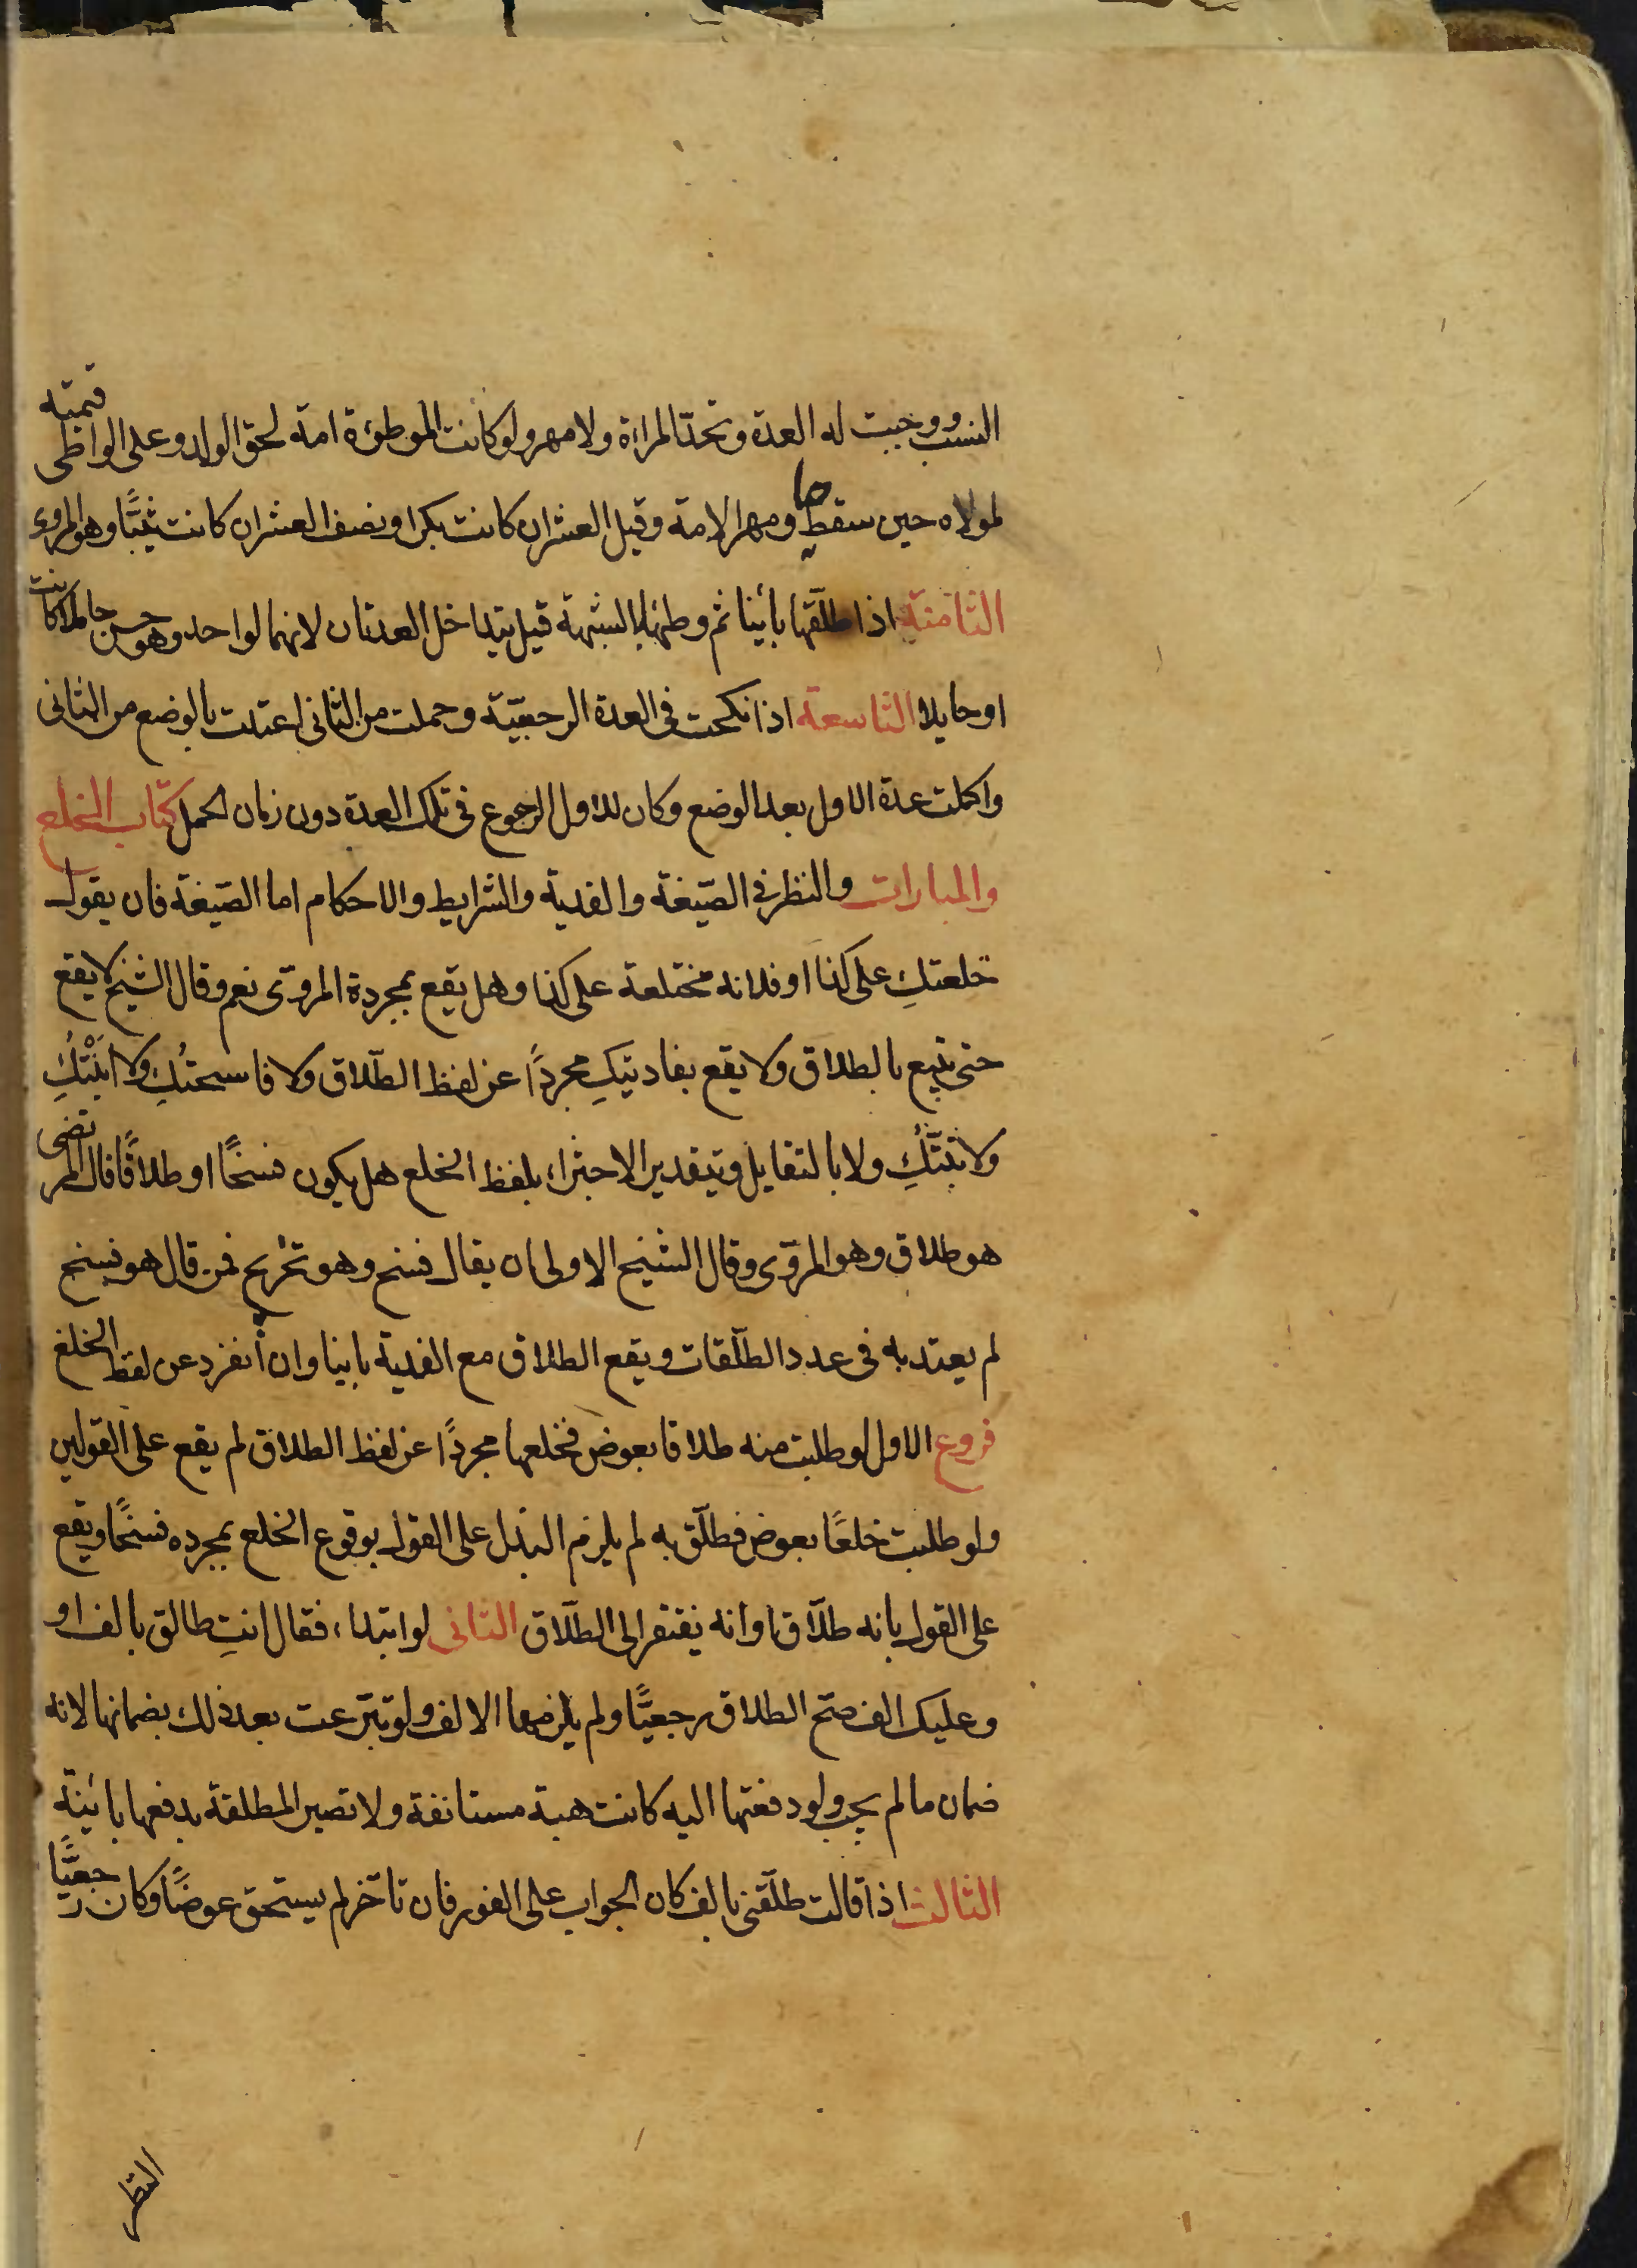 النسب ووجبت له العدة وتحدّ المراءة ولا مهر ولو كانت الموطؤة امة لحق الولد وعلى الواطى قيمته
لمولاه حين سقط حيا ومهر الامة وقيل العشر ان كانت بكرا ونصف العشر ان كانت ثيّبًا وهو المروى
الثامنة اذا طلّقها بائنا ثم وطئها بالشبهة قيل يتداخل العدتان لانهما لواحد وهو حسن حاملا كانت
او حايلا التاسعة اذا نكحت فى العدة الرجعيّة وحملت من الثانى اعتدت بالوضع من الثانى
واكملت عدة الاول بعد الوضع وكان للاول الرجوع فى تلك العدة دون زمان الحمل كتاب الخلع
والمبارات والنظر فى الصّيغة والفدية والشرايط والاحكام اما الصّيغة فان يقول
خلعتكِ على كذا او فلانه مختلعة على كذا وهل يقع بمجردة المروّى نعم وقال الشيخ لا يقع
حتى يتبع بالطلاق ولا يقع بفاديتكِ مجردًا عن لفظ الطّلاق ولا فاسختُكِ ولا ابَنْتُكِ
ولا بَتَتُّكِ ولا بالتقايل وبتقدير الاجتزاء بلفظ الخلع هل يكون فسخًا او طلاقًا قال المرتضى
هو طلاق وهو المروّى وقال الشيخ الاولى ان يقال فسخ وهو تخريج فمن قال هو فسخ
لم يعتد به فى عدد الطّلقات ويقع الطلاق مع الفدية باينا وان أنفرد عن لفظ الخلع
فروع الاول لو طلبت منه طلاقا بعوض فخلعها مجردًا عن لفظ الطلاق لم يقع على القولين
ولو طلبت خلعًا بعوض فطلّق به لم يلزم البذل على القول بوقوع الخلع بمجرده فسخًا ويقع
على القول بانه طلاق او انه يفتقر الى الطّلاق الثانى لو ابتداء فقال انتِ طالق بالف او
وعليك الف صح الطلاق رجعيًّا ولم يلزمها الالف ولو تبرّعت بعد ذلك بضمانها لانه
ضمان ما لم يجب ولو دفعتها اليه كانت هبة مستانفة ولا تصير المطلقة بدفعها بائنة
الثالث اذا قالت طلّقنى بالف كان الجواب على الفور فان تاخّر لم يستحق عوضًا وكان رجعيًّا
النظر